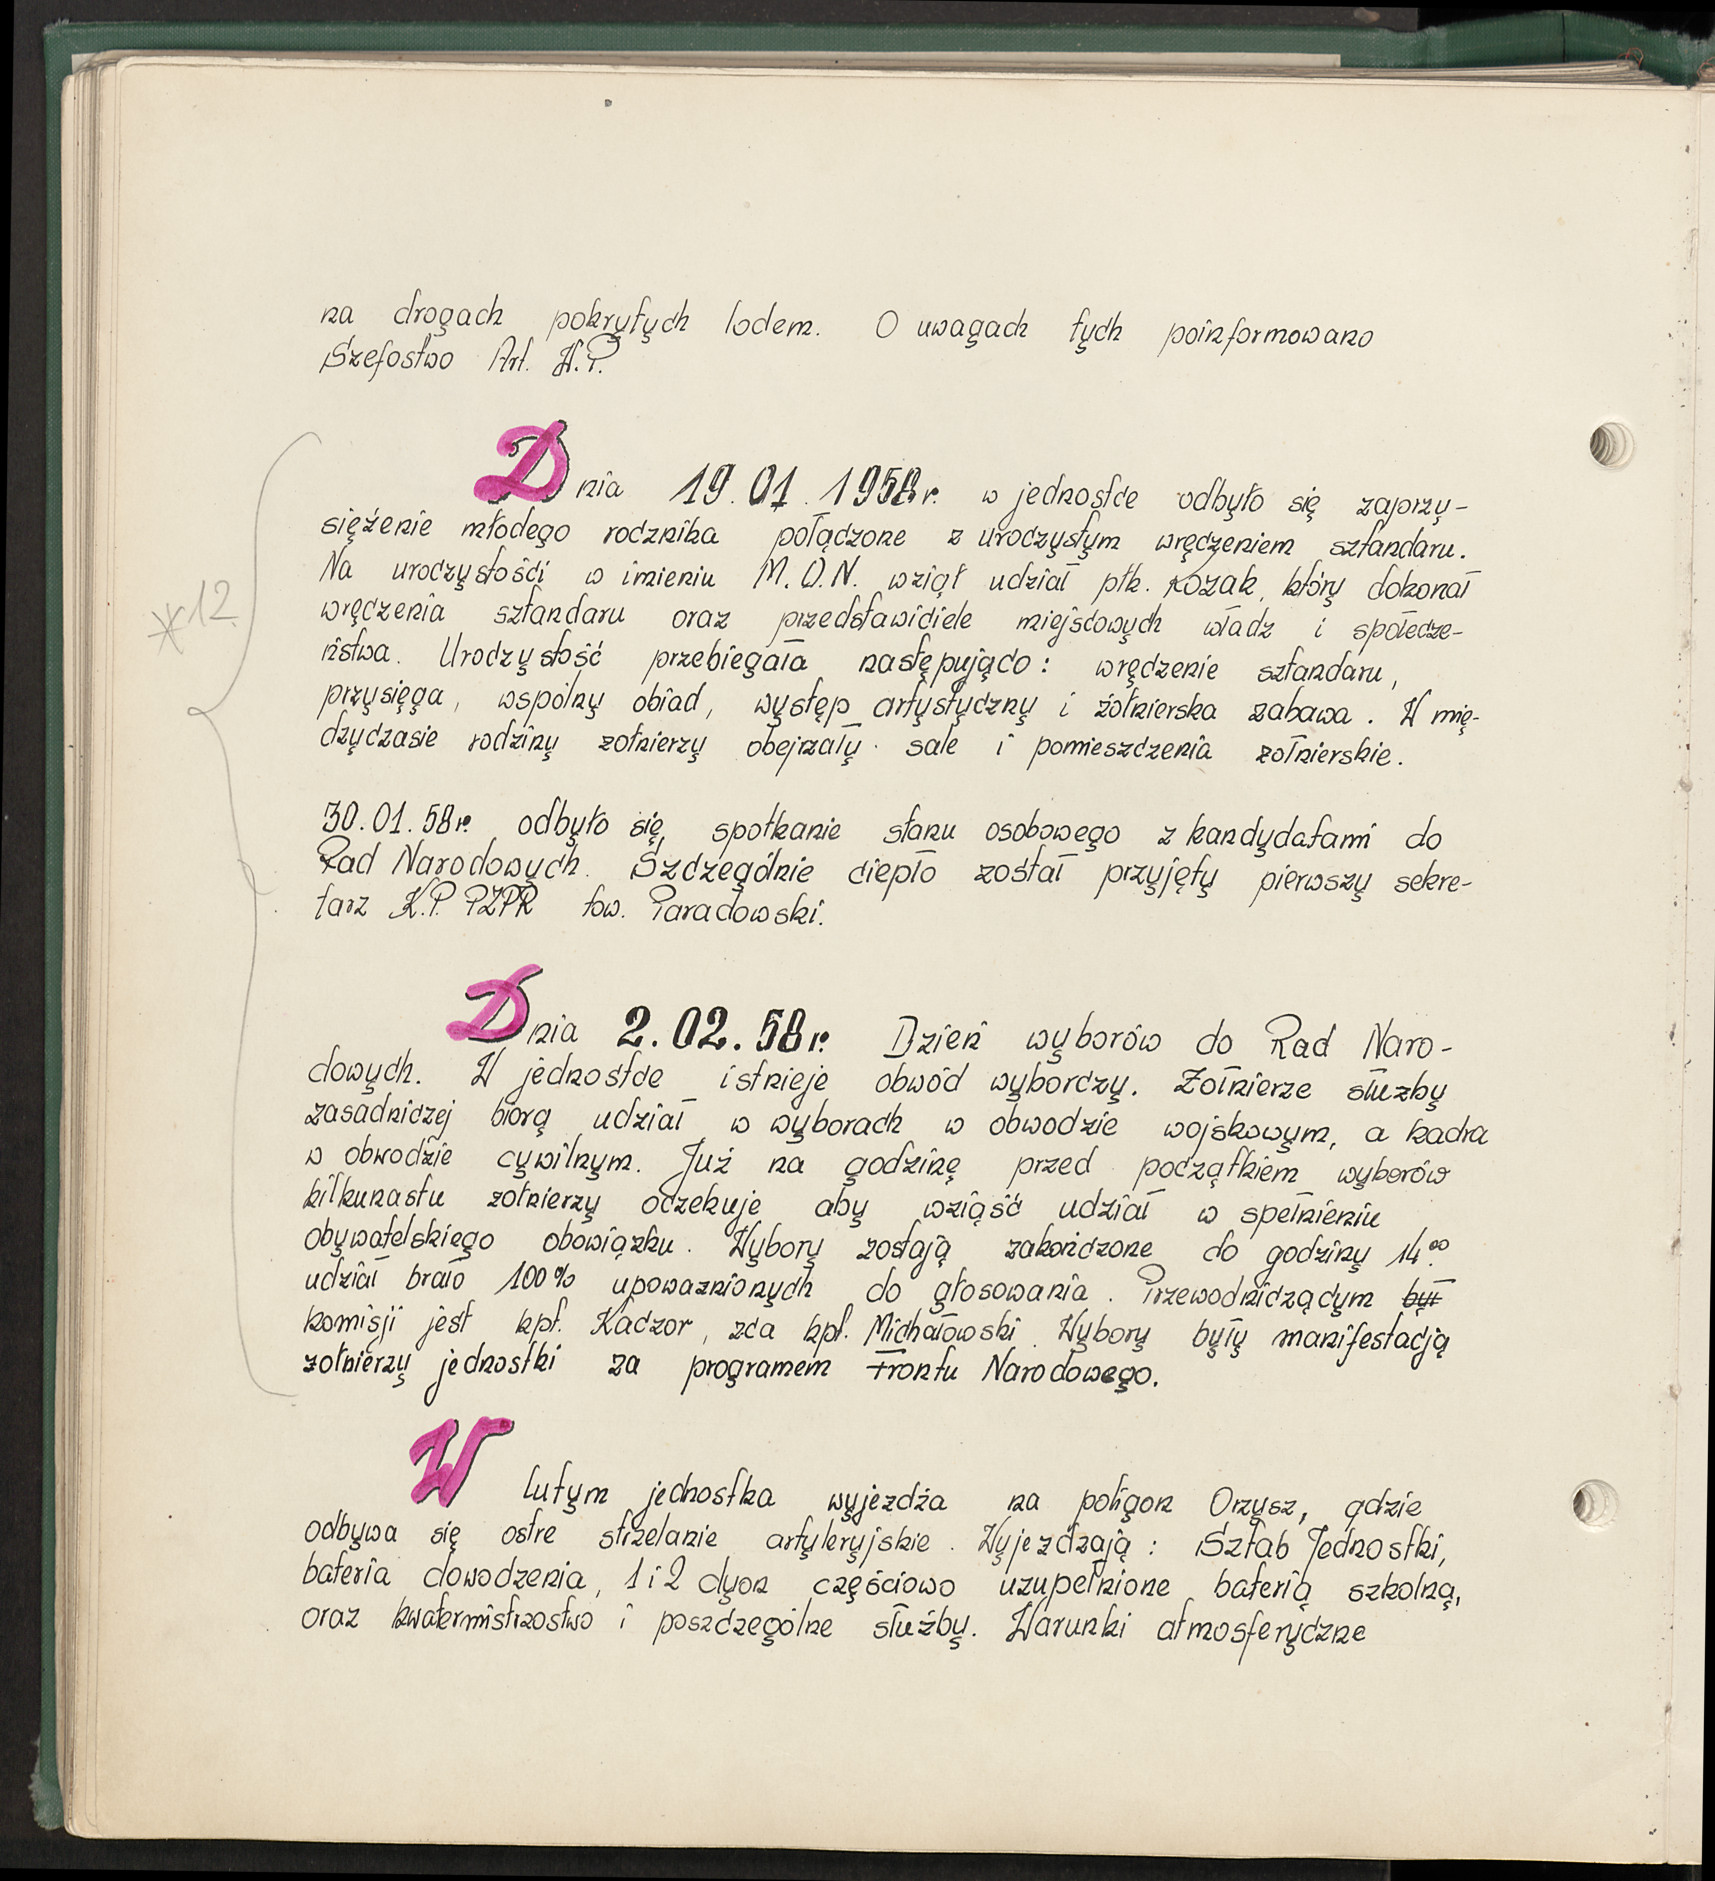 na drogach pokrytych lodem. O uwagach tych poinformowano
Szefostwo Art. W.P.
Dnia 19.01.1958r. w jednostce odbyło się zaprzy-
siężenie młodego rocznika połączone z uroczystym wręczeniem sztandaru.
Na uroczystości w imieniu M.O.N. wziął udział płk. Kozak, który dokonał
*12.
wręczenia sztandaru oraz przedstawiciele miejscowych władz i społecze-
ństwa. Uroczystość przebiegała następująco: wręczenie sztandaru,
przysięga, wspólny obiad, występ artystyczny i żołnierska zabawa. W mię-
dzyczasie rodziny żołnierzy obejrzały sale i pomieszczenia żołnierskie.
30.01.58r. odbyło się spotkanie stanu osobowego z kandydatami do
Rad Narodowych. Szczególnie ciepło został przyjęty pierwszy sekre-
tarz K.P. PZPR tow. Paradowski.
Dnia 2.02.58r. Dzień wyborów do Rad Naro-
dowych. W jednostce istnieje obwód wyborczy. Żołnierze służby
zasadniczej biorą udział w wyborach w obwodzie wojskowym, a kadra
w obwodzie cywilnym. Już na godzinę przed początkiem wyborów
kilkunastu żołnierzy oczekuje aby wziąść udział w spełnieniu
obywatelskiego obowiązku. Wybory zostają zakończone do godziny 14.00
udział brało 100% upoważnionych do głosowania. Przewodniczącym był
komisji jest kpt. Kaczor, zca kpt. Michałowski. Wybory były manifestacją
żołnierzy jednostki za programem Frontu Narodowego.
W lutym jednostka wyjeżdża na poligon Orzysz, gdzie
odbywa się ostre strzelanie artyleryjskie. Wyjeżdżają: Sztab Jednostki,
bateria dowodzenia, 1 i 2 dyon częściowo uzupełnione baterią szkolną,
oraz kwatermistrzostwo i poszczególne służby. Warunki atmosferyczne